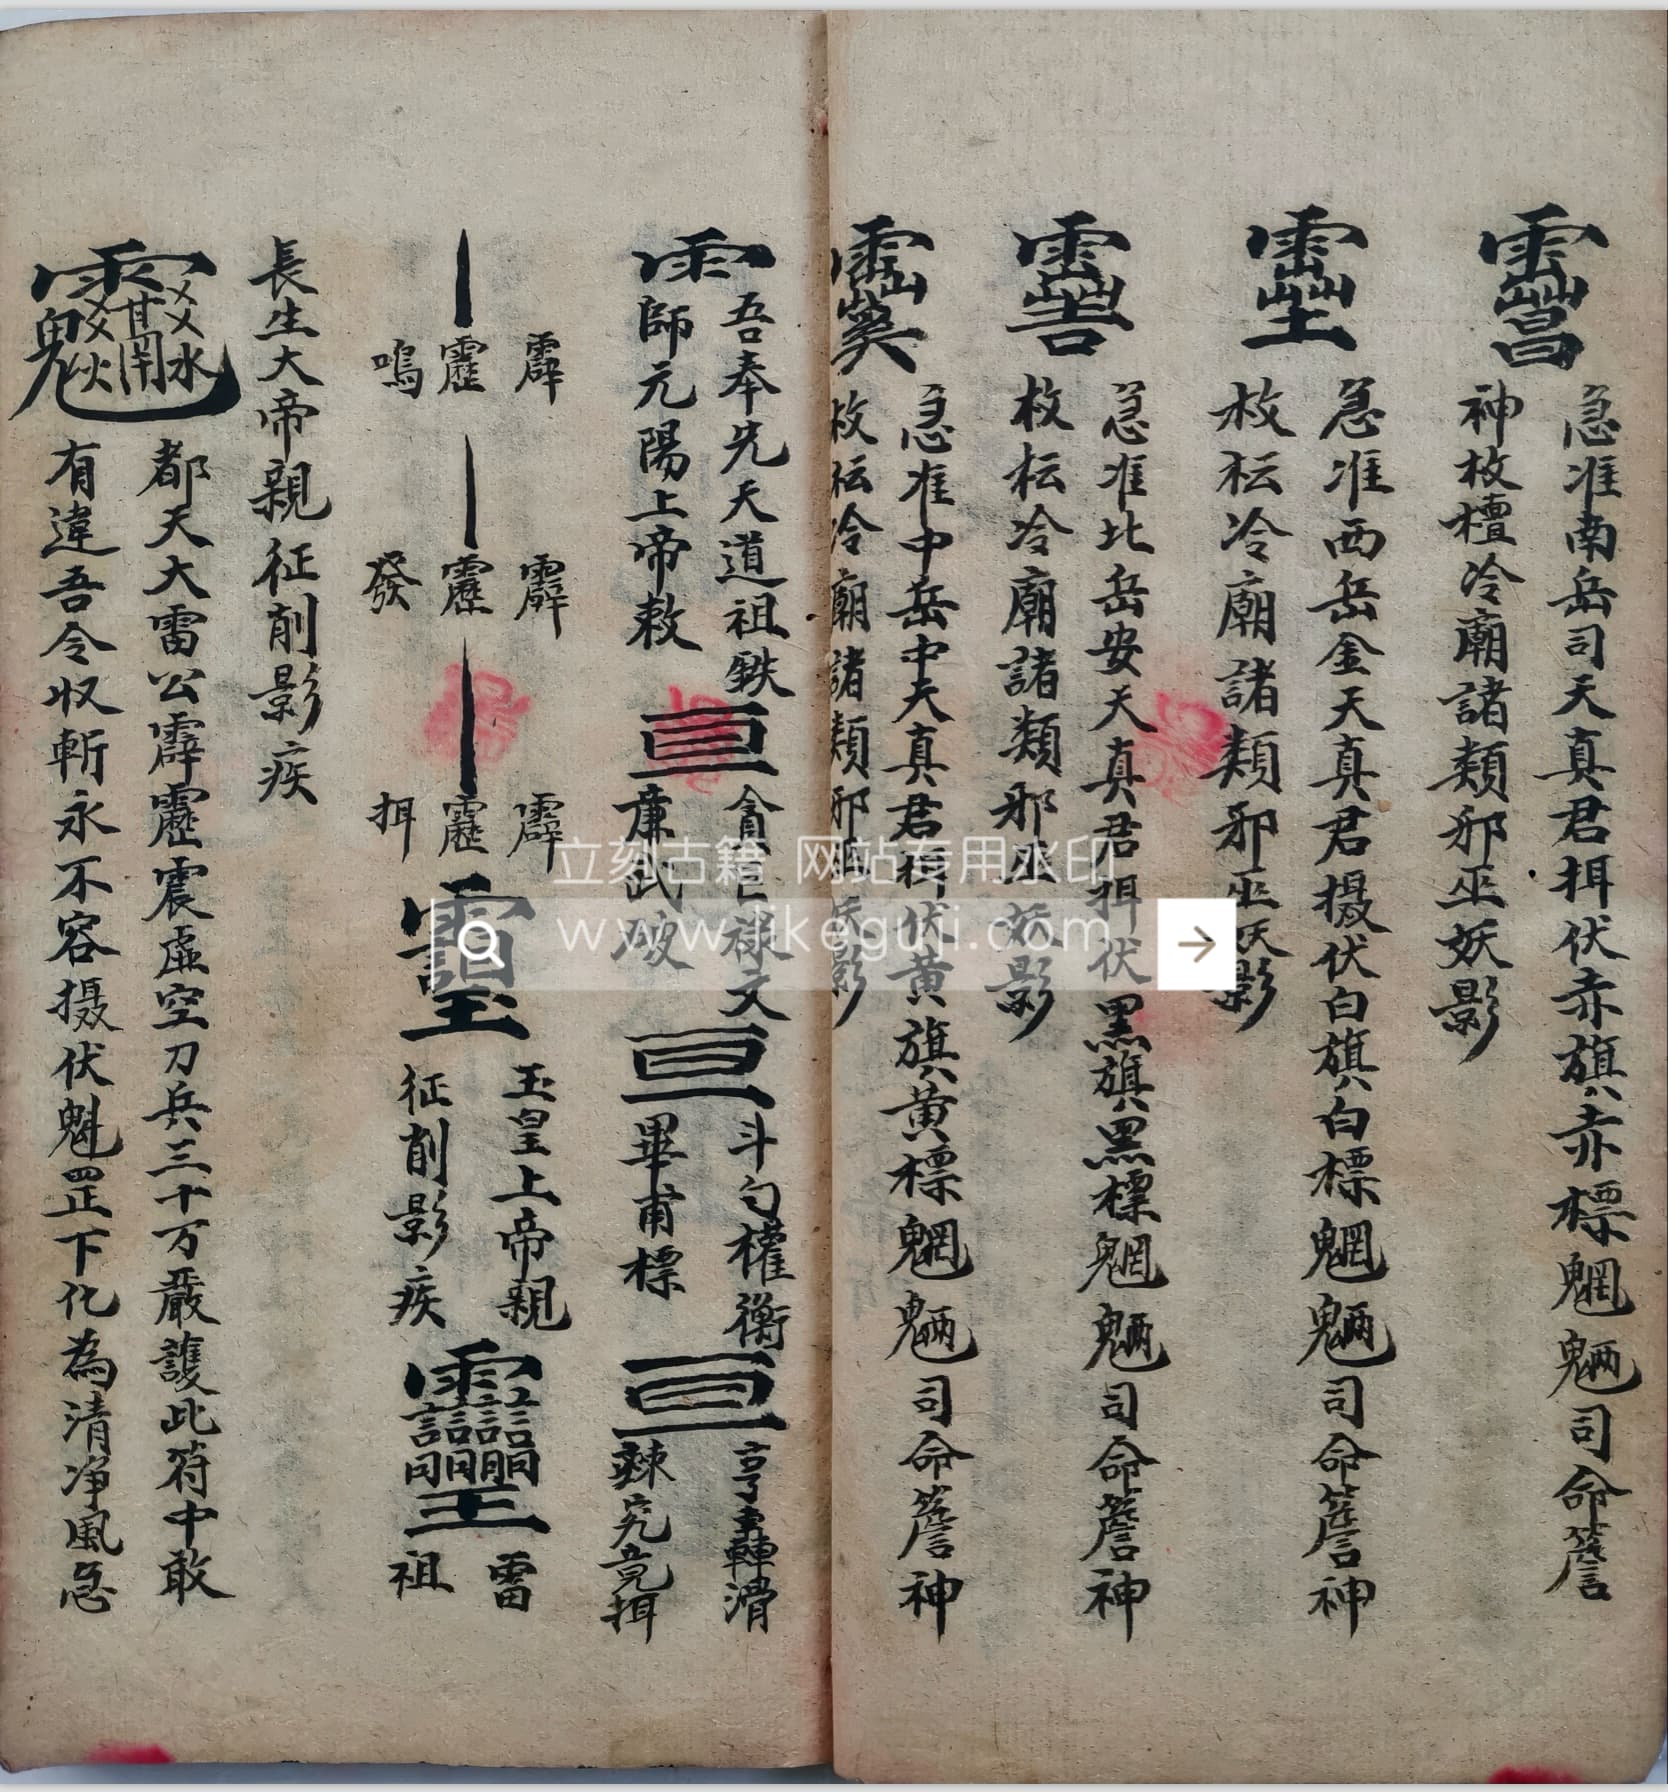 急准南岳司天真君拜伏赤旗赤標魍魎司命簷
神枚檀冷廟諸類邪巫妖影
急准西岳金天真君摄伏白旗白標魍魎司命簷神
枚枟冷廟諸類邪巫妖影
急准北岳安天真君拜伏黑旗黑標魍魎司命簷神
枚枟冷廟諸類邪巫妖影
急准中岳中天真君拜伏黄旗黄標魍魎司命簷神
枚枟冷廟諸類邪巫妖影
吾奉先天道祖鉄
師元陽上帝敕
貪巨禄文
廉武破
斗勺權衡
畢甫標
霹靂鳴
霹靂發
霹靂
玉皇上帝親
征削影疾
雷祖
長生大帝親征削影疾
都天大雷公霹靂震虚空刀兵三十万嚴護此符中敢
有違吾令収斬永不容摄伏魁罡下化為清净風急
立刻古籍 网站专用水印
www.likeguji.com